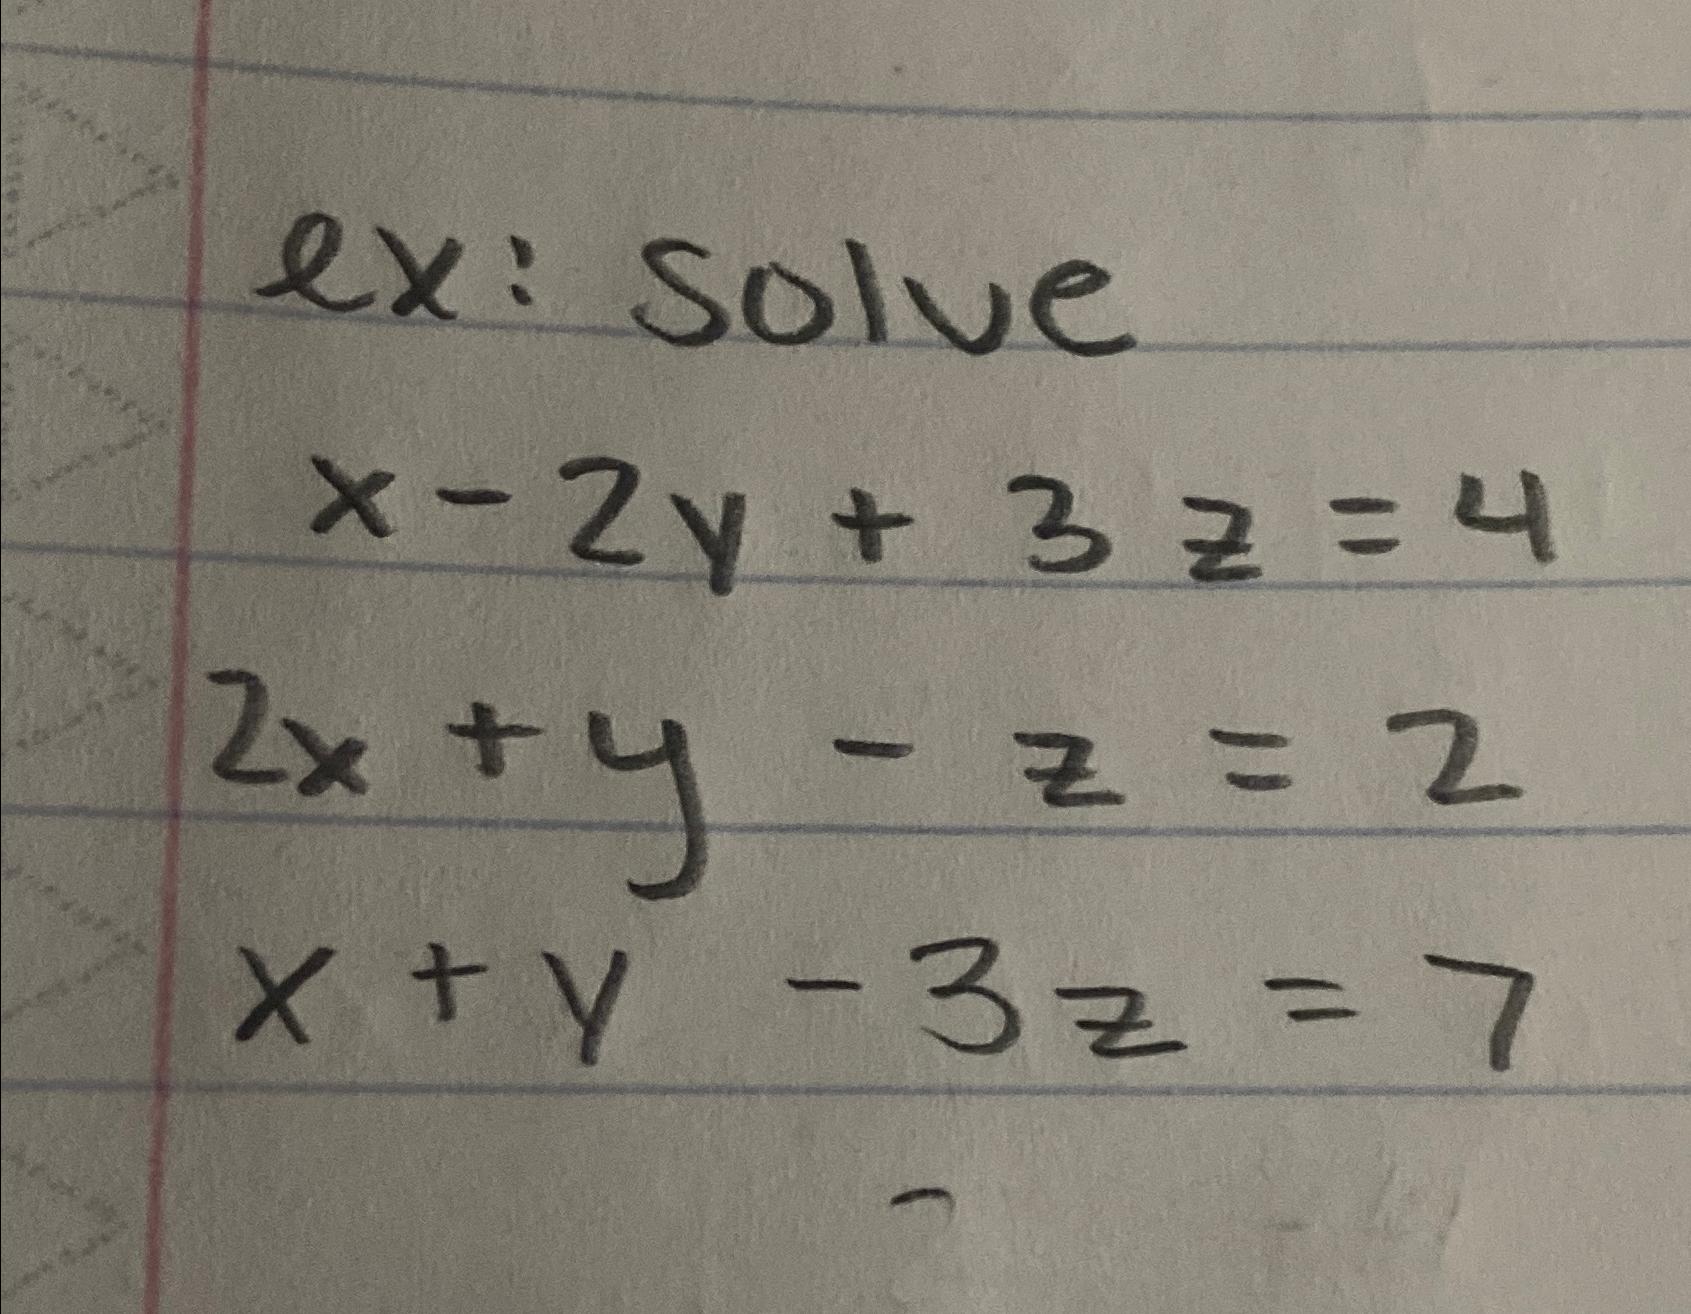 ex: solve
x - 2y + 3z = 4
2x + y - z = 2
x + y - 3z = 7